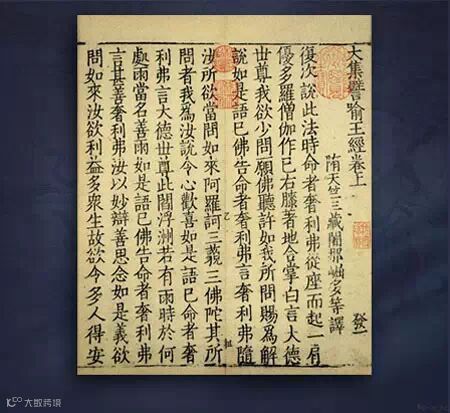 大集譬喻王經卷上
發一
隋天竺三藏闍那崛多等譯
復次說此法時命者奢利弗從座而起一肩
優多羅僧伽作已右膝著地合掌白言大德
世尊我欲少問一願佛聽許如我所問賜為解
說如是語已佛告命者奢利弗言奢利弗隨
汝所欲當問如來阿羅訶三藐三佛陀其所
問者我為汝說令心歡喜如是語已命者奢
利弗言大德世尊此閻浮洲若有雨時於何
處雨當名善雨如是語已佛告命者奢利弗
言甚善奢利弗汝以妙辯善思念如是義欲
問如來汝欲利益多衆生故欲令多人得安
大数跨境